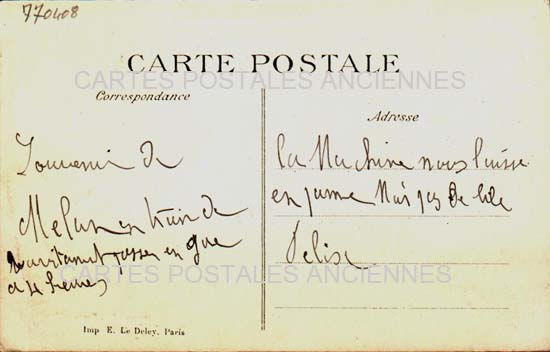 770408
CARTE POSTALE
CARTES POSTALES ANCIENNES
Correspondance
Adresse
Souvenir de
Melun en train de
passer en gare
a 4 heures
La Machine nous laisse
en panne Mais pas de
CARTES POSTALES ANCIENNES
Imp E. Le Deley, Paris